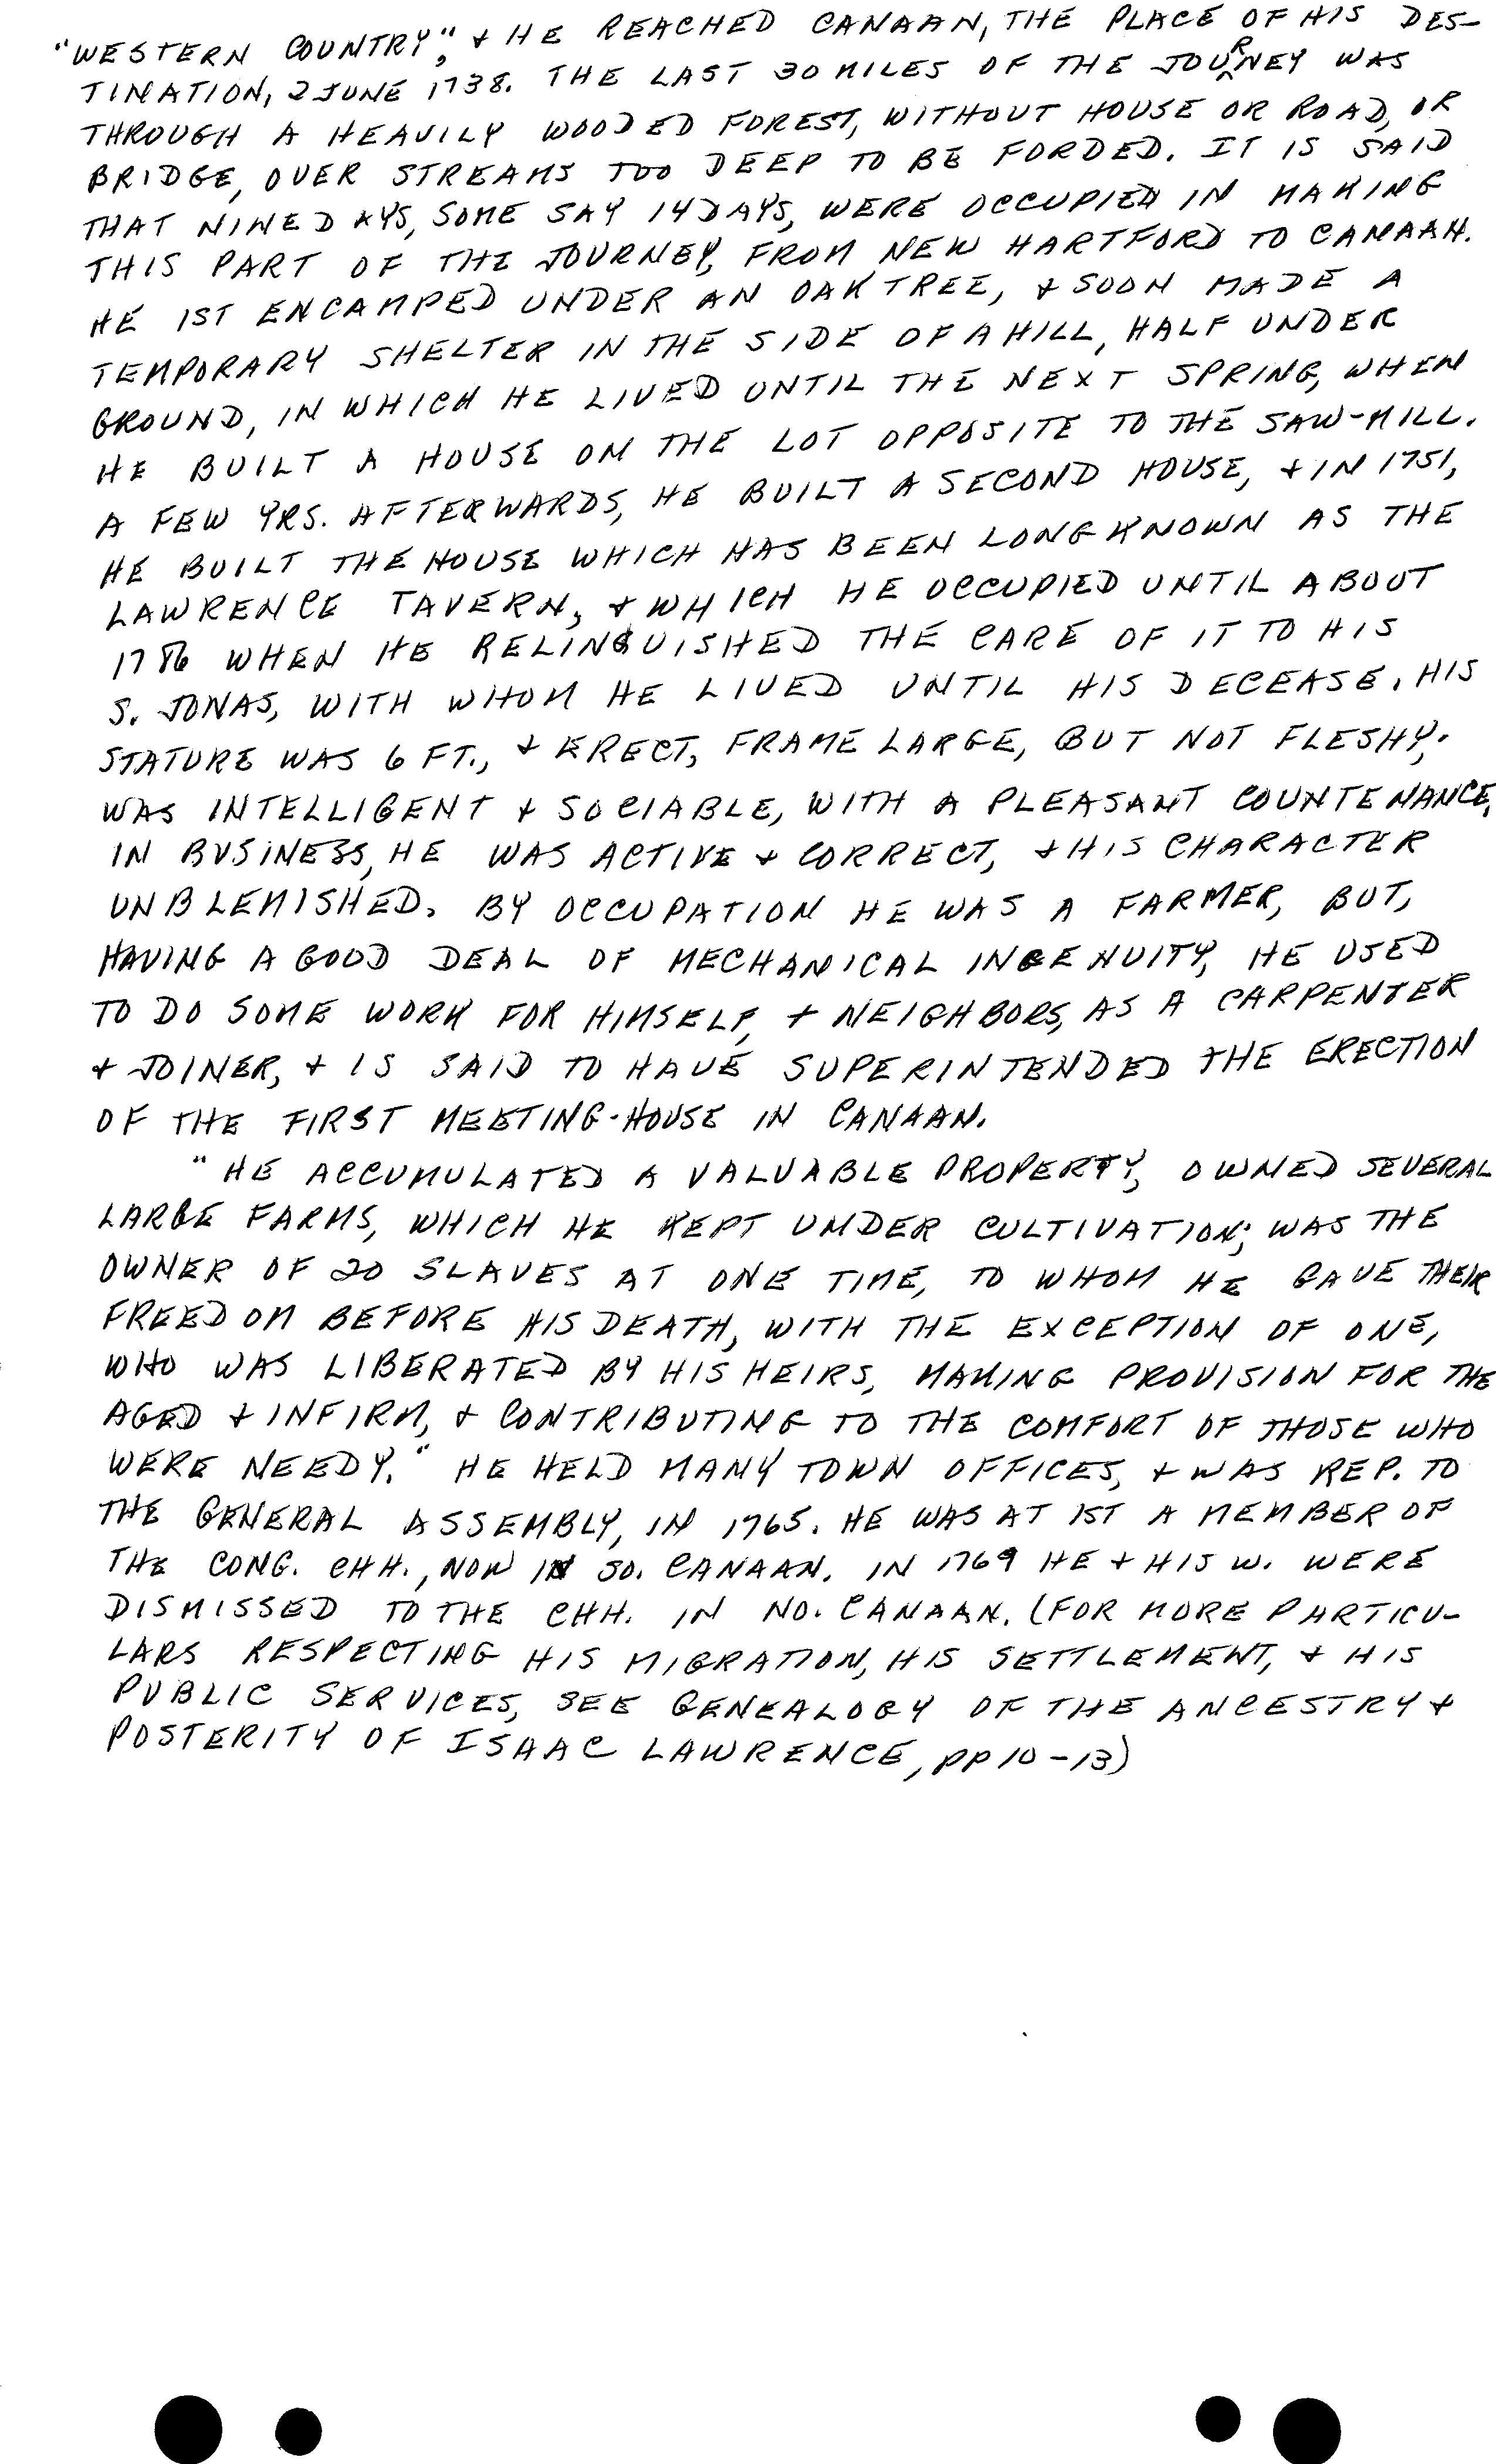 "WESTERN COUNTRY", & HE REACHED CANAAN, THE PLACE OF HIS DES-
TINATION, 2 JUNE 1738. THE LAST 30 MILES OF THE JOURNEY WAS
THROUGH A HEAVILY WOODED FOREST, WITHOUT HOUSE OR ROAD, OR
BRIDGE, OVER STREAMS TOO DEEP TO BE FORDED. IT IS SAID
THAT NINE DAYS, SOME SAY 14 DAYS, WERE OCCUPIED IN MAKING
THIS PART OF THE JOURNEY, FROM NEW HARTFORD TO CANAAN.
HE 1ST ENCAMPED UNDER AN OAK TREE, & SOON MADE A
TEMPORARY SHELTER IN THE SIDE OF A HILL, HALF UNDER
GROUND, IN WHICH HE LIVED UNTIL THE NEXT SPRING, WHEN
HE BUILT A HOUSE ON THE LOT OPPOSITE TO THE SAW-MILL.
A FEW YRS. AFTERWARDS, HE BUILT A SECOND HOUSE, & IN 1751,
HE BUILT THE HOUSE WHICH HAS BEEN LONG KNOWN AS THE
LAWRENCE TAVERN, & WHICH HE OCCUPIED UNTIL ABOUT
1786 WHEN HE RELINQUISHED THE CARE OF IT TO HIS
S. JONAS, WITH WHOM HE LIVED UNTIL HIS DECEASE. HIS
STATURE WAS 6 FT., & ERECT, FRAME LARGE, BUT NOT FLESHY;
WAS INTELLIGENT & SOCIABLE, WITH A PLEASANT COUNTENANCE.
IN BUSINESS, HE WAS ACTIVE & CORRECT, & HIS CHARACTER
UNBLEMISHED. BY OCCUPATION HE WAS A FARMER, BUT,
HAVING A GOOD DEAL OF MECHANICAL INGENUITY, HE USED
TO DO SOME WORK FOR HIMSELF, & NEIGHBORS, AS A CARPENTER
& JOINER, & IS SAID TO HAVE SUPERINTENDED THE ERECTION
OF THE FIRST MEETING-HOUSE IN CANAAN.
"HE ACCUMULATED A VALUABLE PROPERTY, OWNED SEVERAL
LARGE FARMS, WHICH HE KEPT UNDER CULTIVATION; WAS THE
OWNER OF 20 SLAVES AT ONE TIME, TO WHOM HE GAVE THEIR
FREEDOM BEFORE HIS DEATH, WITH THE EXCEPTION OF ONE,
WHO WAS LIBERATED BY HIS HEIRS, MAKING PROVISION FOR THE
AGED & INFIRM, & CONTRIBUTING TO THE COMFORT OF THOSE WHO
WERE NEEDY." HE HELD MANY TOWN OFFICES, & WAS REP. TO
THE GENERAL ASSEMBLY, IN 1765. HE WAS AT 1ST A MEMBER OF
THE CONG. CHH., NOW IN SO. CANAAN. IN 1769 HE & HIS W. WERE
DISMISSED TO THE CHH. IN NO. CANAAN. (FOR MORE PARTICU-
LARS RESPECTING HIS MIGRATION, HIS SETTLEMENT, & HIS
PUBLIC SERVICES, SEE GENEALOGY OF THE ANCESTRY &
POSTERITY OF ISAAC LAWRENCE, pp 10-13)